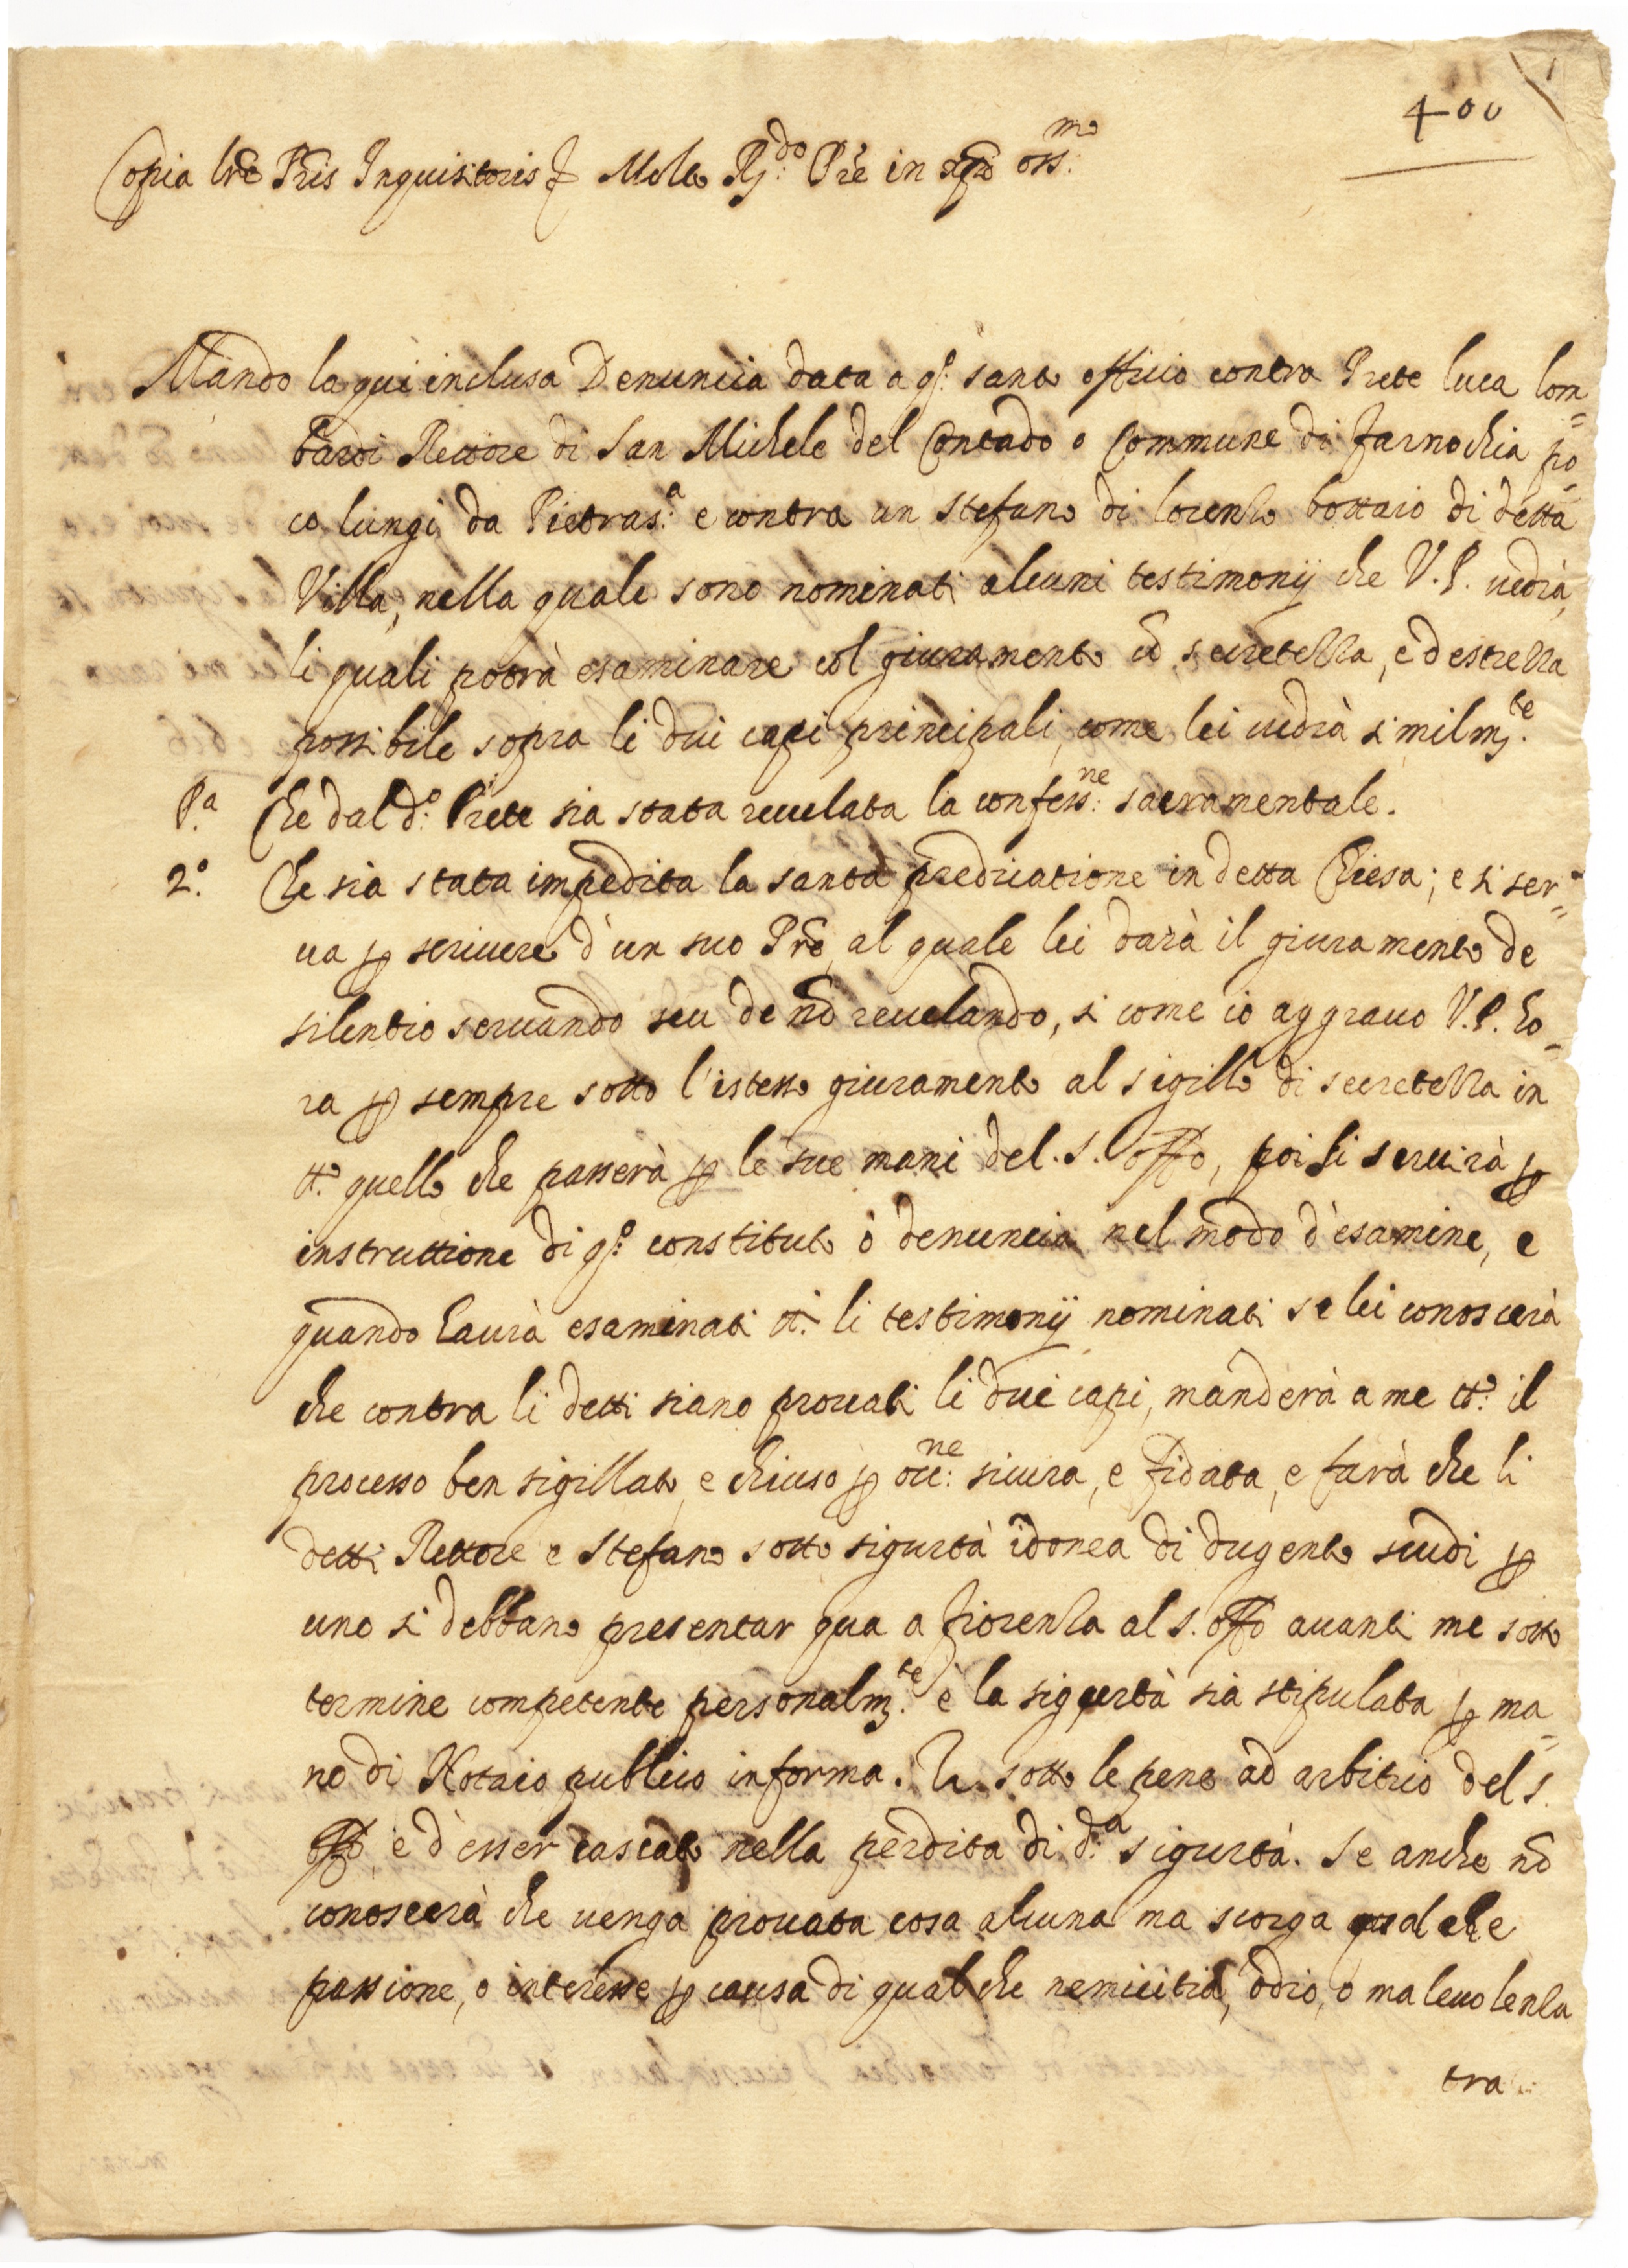 400
Copia lře Pris Inquisitoris Molto Rdo: Pře in xpo oss:mo
Mando la qui inclusa Denuncia data a q.o santo officio contra Prete luca lom=
bardi Rettore di San Michele del Contado o Commune di farnochia po=
co lungi da Pietras.a e contra un stefano di lorenzo bottaio di detta
Villa, nella quale sono nominati alcuni testimonij che V.P. uedrà,
li quali potrà esaminare col giuramento cõ secretezza, e destrezza
possibile sopra li dui capi principali, come lei uedrà similm.te
P.a Che dal d.o Prete sia stata reuelata la confess:ne sacramentale.
2.o Che sia stata impedita la santa predicatione in detta Chiesa; e si ser=
ua ꝑ scriuere d'un suo Prẽ, al quale lei darà il giuramento de
silentio seruando seu de nõ reuelando, si come io aggrauo V.P. ho=
ra ꝑ sempre sotto l'istesso giuramento al sigillo di secretezza in
tt.o quello che passerà ꝑ le sue mani del. S. offo, poi si seruirà ꝑ
instruttione di q.o constituto ò denuncia nel modo d'esamine, e
quando haurà esaminati tt.i li testimonij nominati se lei conoscerà
che contra li detti siano prouati li dui capi, manderà a me tt.o il
processo ben sigillato, e chiuso ꝑ occ:ne sicura, e fidata, e farà che li
detti Rettore e Stefano sotto sigurtà idonea di dugento scudi ꝑ
uno si debbano presentar qua a fiorenza al s. offo auanti me sotto
termine competente personalm.te e la sigurtà sia stipulata ꝑ ma=
no di Notaio publico in forma. sotto le pene ad arbitrio del s.
offo, e d'esser cascato nella perdita di d.a sigurtà. Se anche nõ
conoscerà che uenga prouata cosa alcuna ma scorga qualche
passione, o interesse ꝑ causa di qualche nemicitia, odio, o maleuolenza
tra